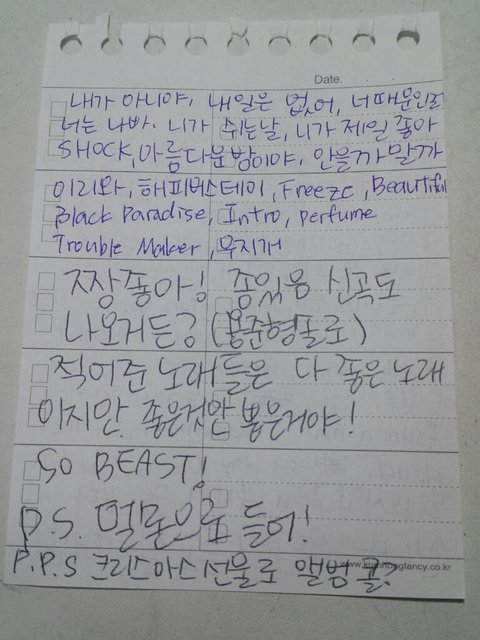 Date.
내가 아니야, 내일은 없어, 너 때문인걸
너는 나빠, 니가 쉬는날, 니가 제일 좋아
SHOCK, 아름다운밤이야, 안을까 말까
이리와, 해피버스데이, Freeze, Beautiful
Black Paradise, Intro, perfume
Trouble Maker, 무지개
짱좋아! 좀있음 신곡도
나오거든ㅋ (용준형솔로)
적어준 노래들은 다 좋은 노래
이지만 좋은것만 뽑은거야!
SO BEAST!
P.S. 멜론으로 들어!
P.P.S 크리스마스 선물로 앨범 콜?
www.kumhongfancy.co.kr